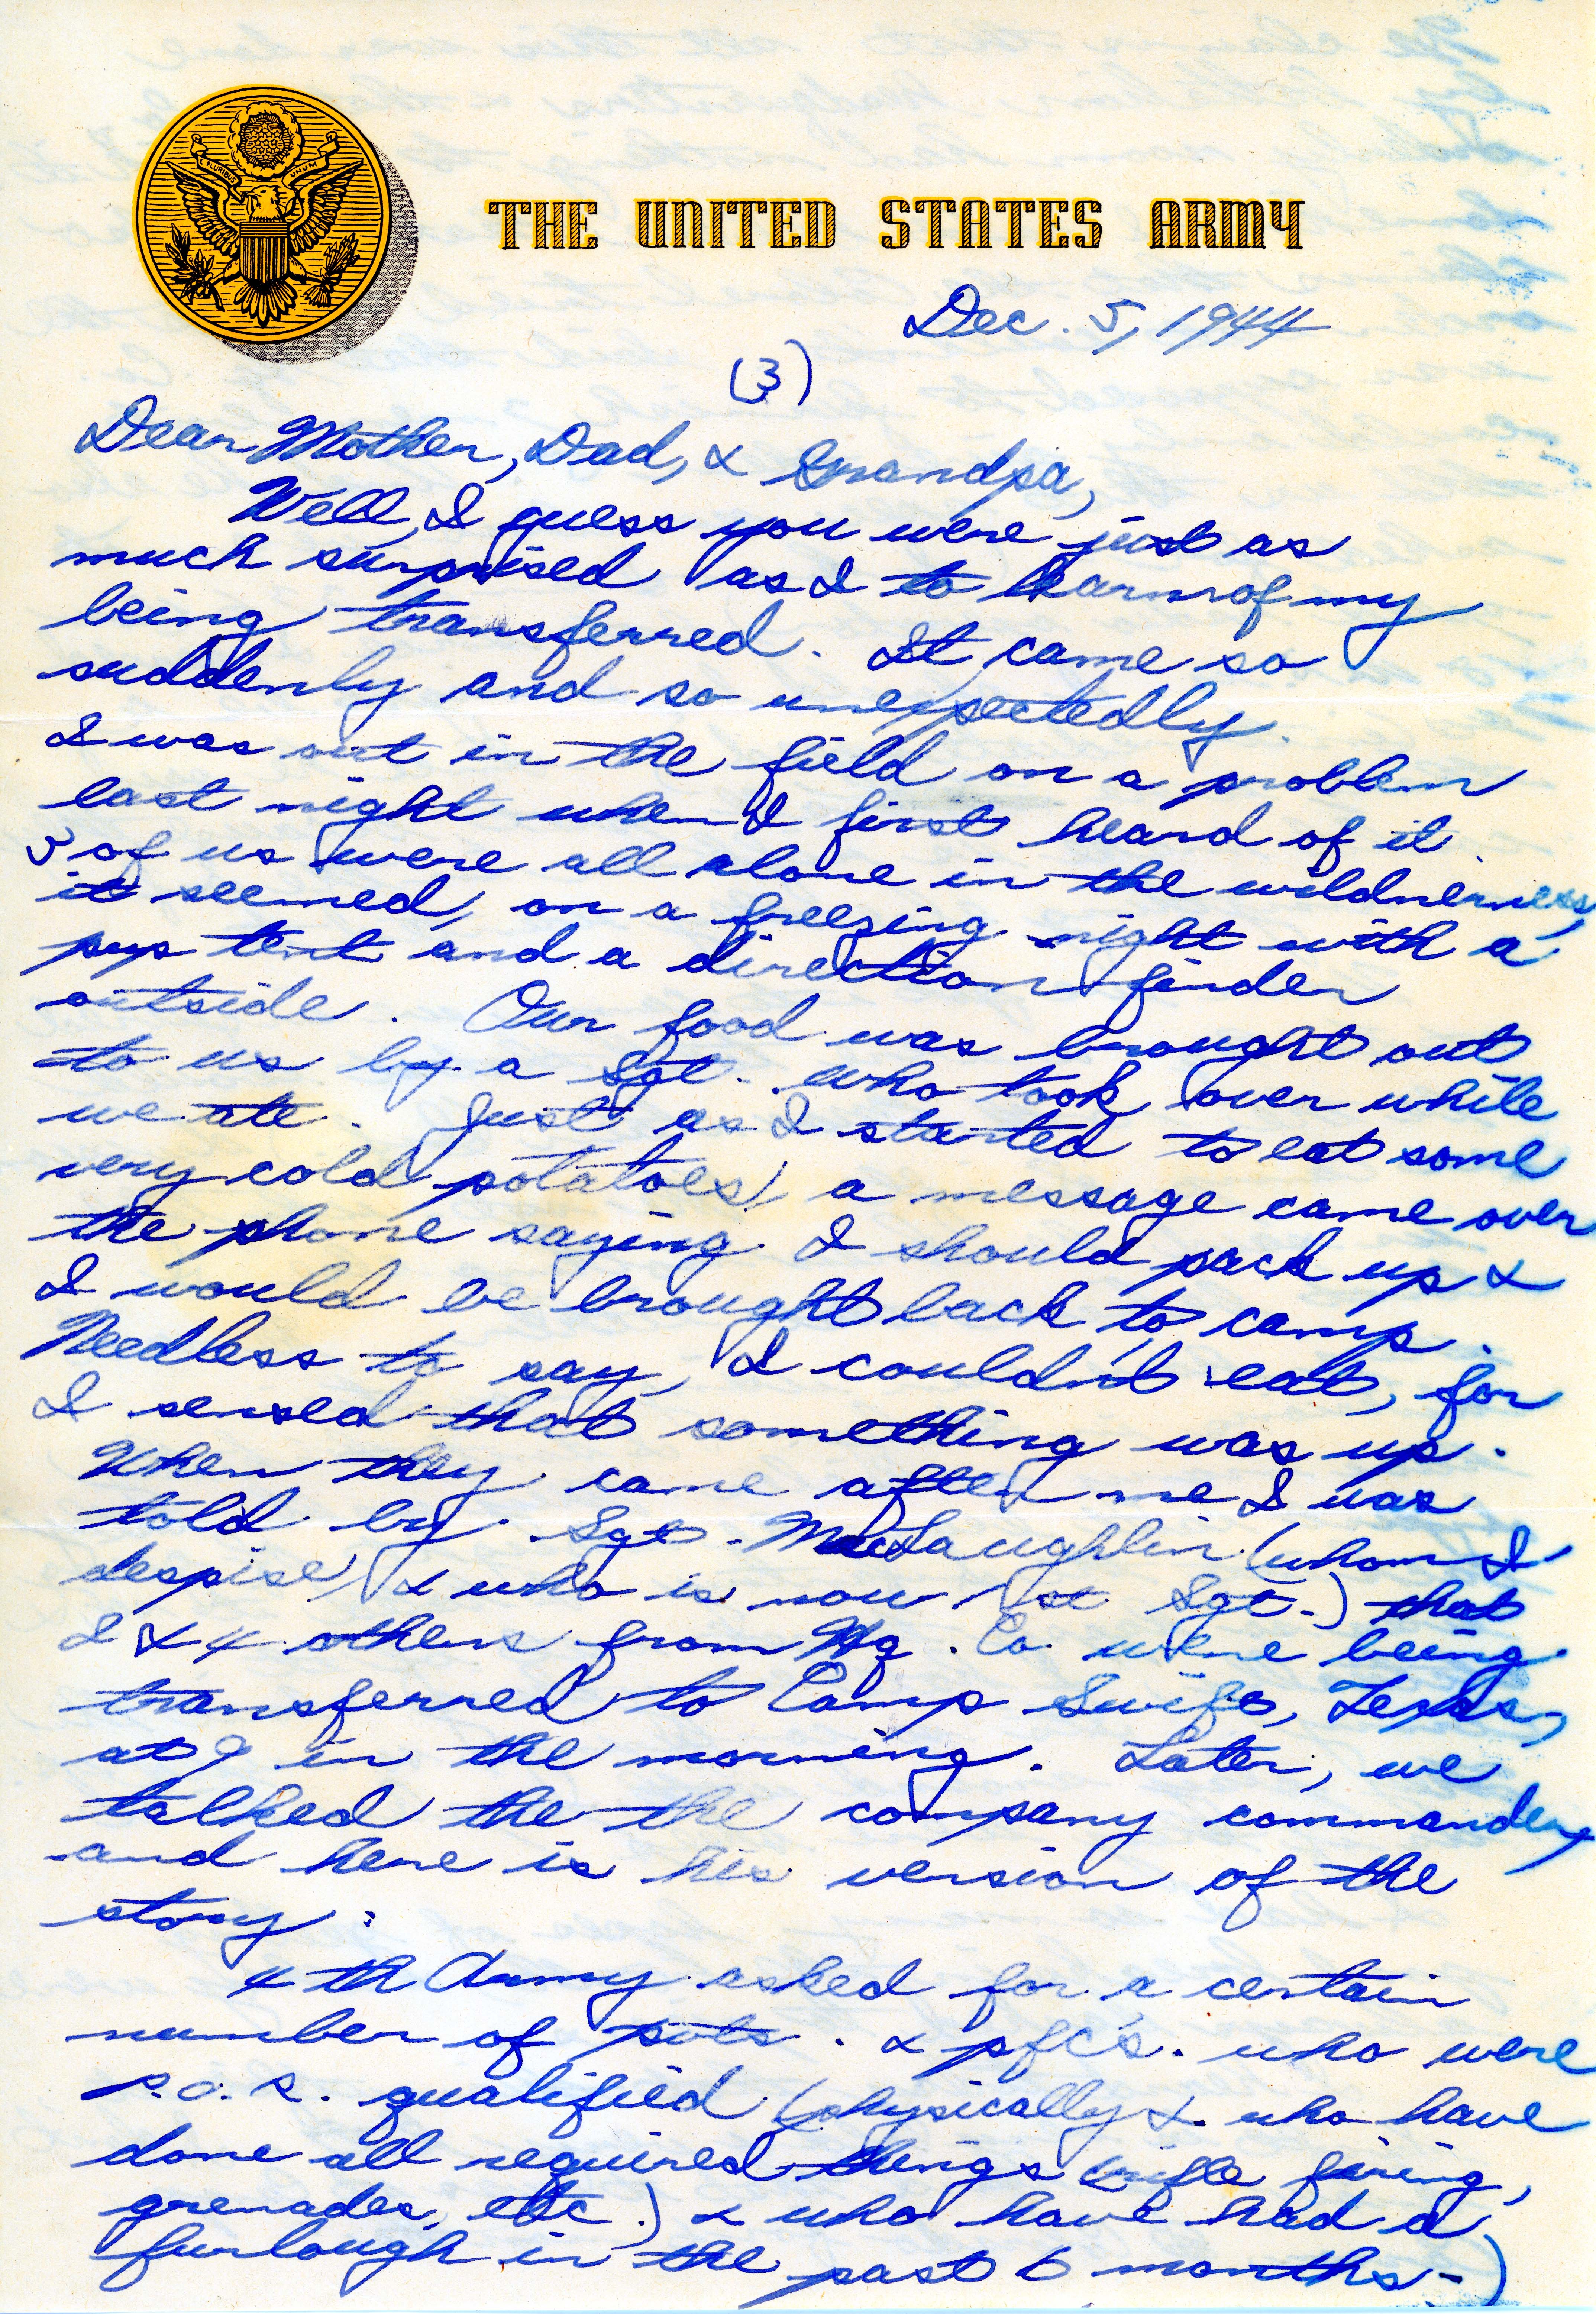 PLURIBUS UNUM
THE UNITED STATES ARMY
Dec. 5, 1944
(3)
Dear Mother, Dad, & Grandpa,
Well, I guess you were just as
much surprised as I to learn of my
being transferred. It came so
suddenly and so unexpectedly.
I was out in the field on a problem
last night when I first heard of it.
5 of us were all alone in the wilderness,
it seemed, on a freezing night with a
pup tent and a direction finder
outside. Our food was brought out
to us by a Sgt. who took over while
we ate. Just as I started to eat some
very cold potatoes, a message came over
the phone saying I should pack up &
I would be brought back to camp.
Needless to say, I couldn't eat, for
I sensed that something was up.
When they came after me I was
told by Sgt. MacLaughlin (whom I
despise, & who is now 1st Sgt.) that
I & 4 others from Hq. Co. were being
transferred to Camp Swift, Texas,
at 9 in the morning. Later, we
talked the the company commander,
and here is his version of the
story:
4th Army asked for a certain
number of pvts. & pfc's. who were
qualified (physically & who have
done all required things rifle firing,
grenades, etc.) & who have had a
furlough in the past 6 months-)